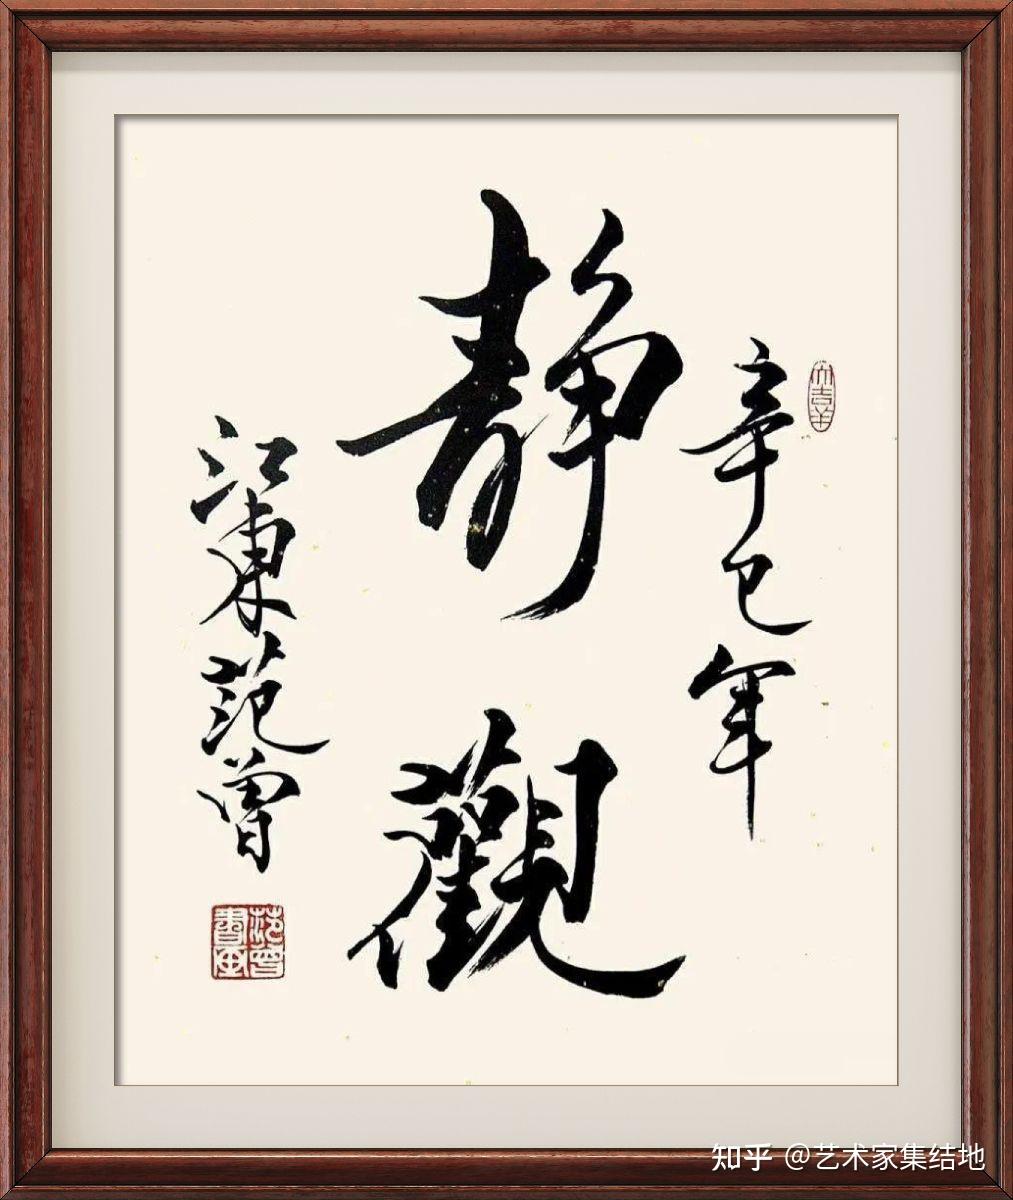 辛巳年
靜觀
江東范曾
大吉羊
范曾書畫
知乎 @艺术家集结地